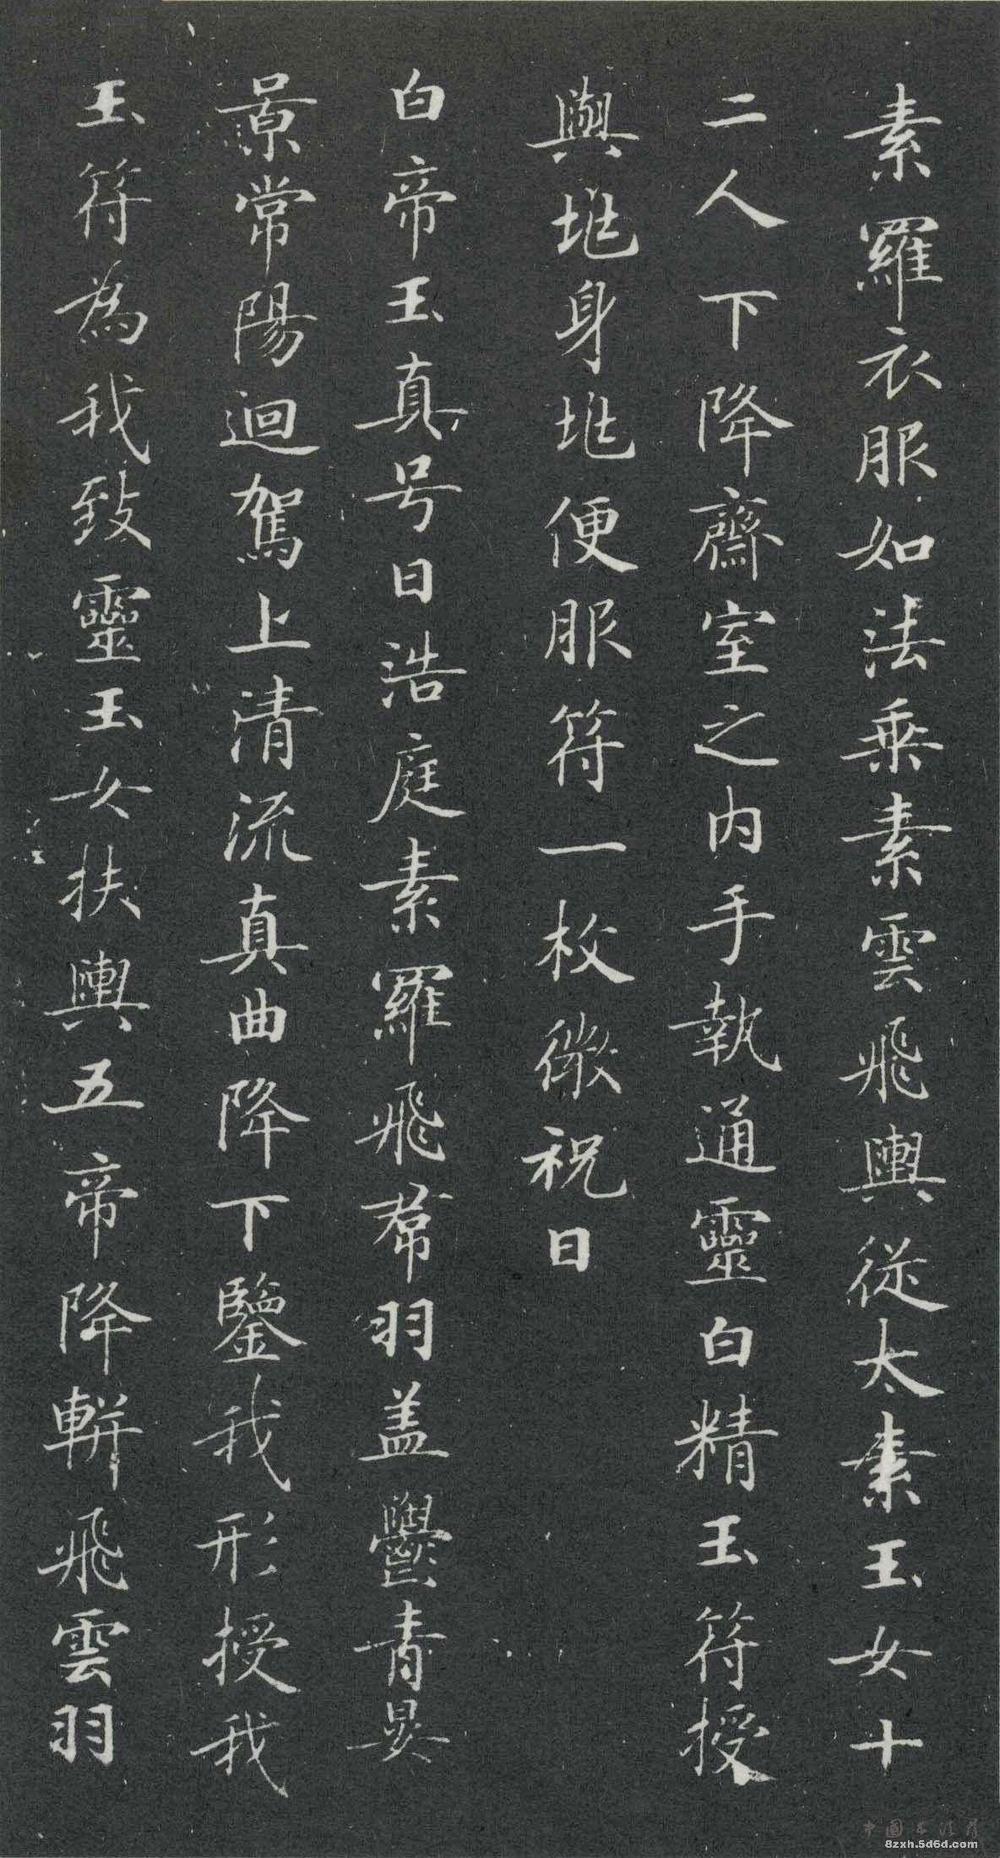 素羅衣服如法乘素雲飛輿從太素玉女十
二人下降齋室之内手執通靈白精玉符授
與兆身兆便服符一枚微祝曰
白帝玉真号曰浩庭素羅飛帬羽盖鬱青昊
景常陽迴駕上清流真曲降下鑒我形授我
玉符為我致靈玉女扶輿五帝降軿飛雲羽
8zxh.5d6d.com